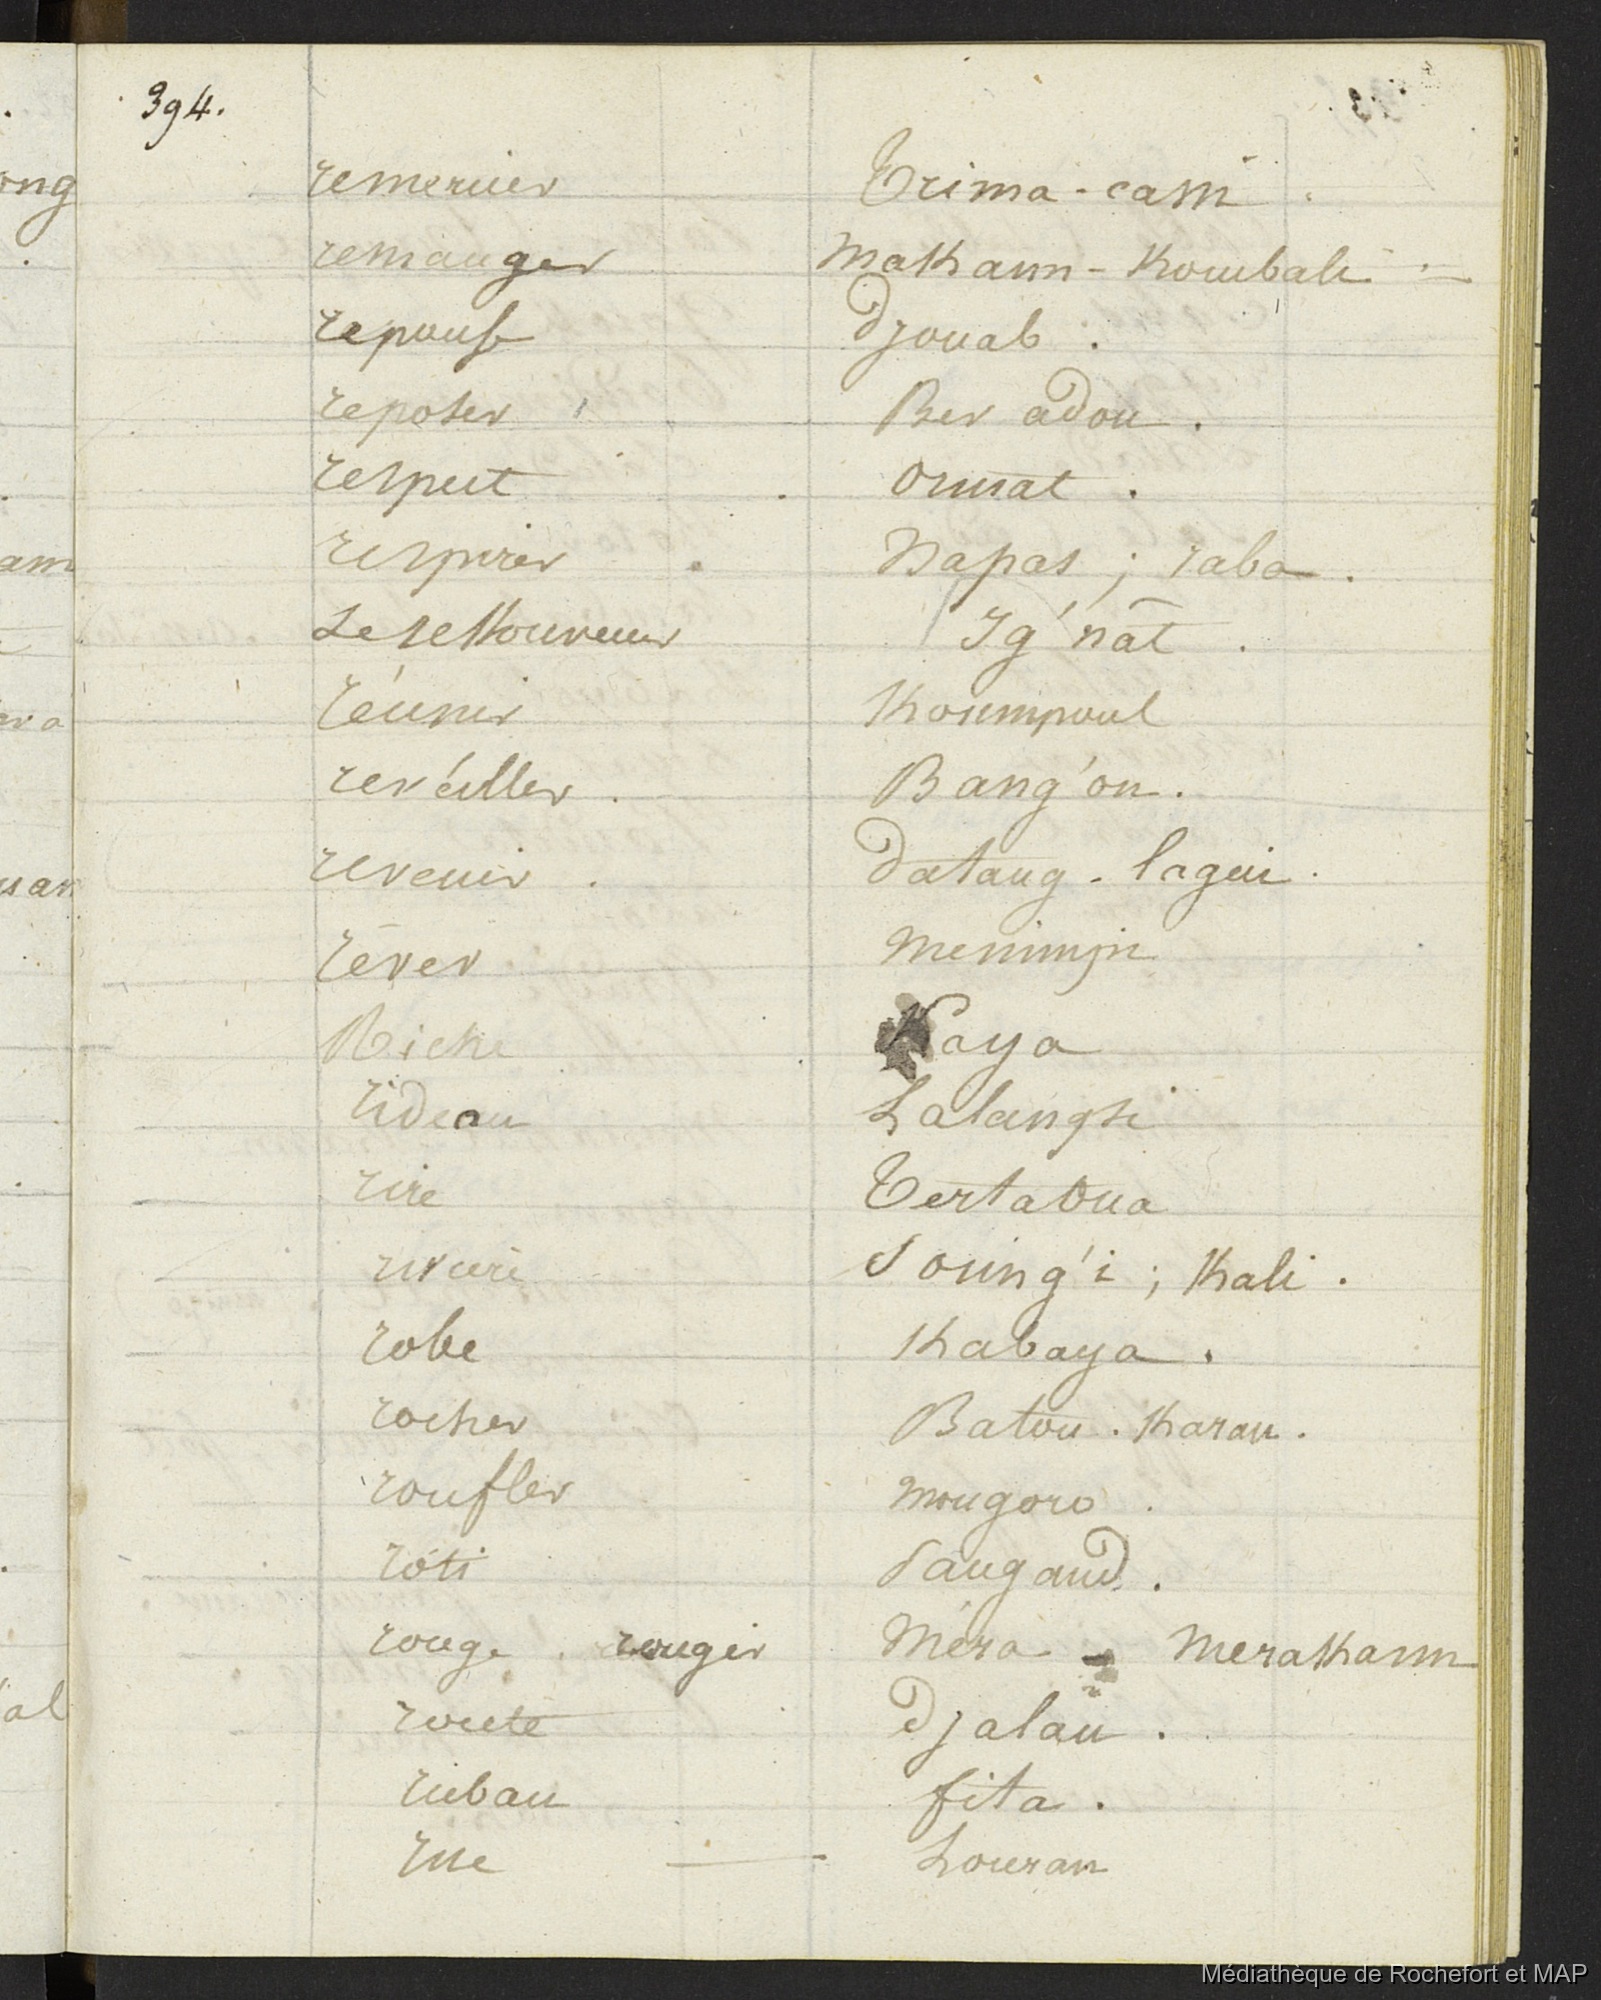 394.
remercier Trima-cassi.
remanger Makann-Koumbali
reponse Djouab.
reposer Ber adou.
respect Ormat.
respirer Napas; raba.
Se ressouvenir Ig'nat.
réunir Koumpoul
reveiller. Bang'on.
revenir. Datang-lagui.
rêver Menimpi
Riche Kaya
rideau Lalangsi
rire Tertaoua
riviere Soung'i; Kali.
robe Kabaya.
rocher Batou. Karan.
ronfler Mougoro.
rôti Pangand.
rouge. rougir Mera - Merakann
route Djalan.
ruban fita.
rue Louran
ong
am
al
Médiathèque de Rochefort et MAP